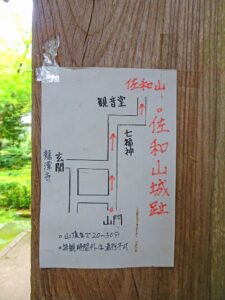 佐和山
。佐和山城趾
観音堂
七福神
龍潭寺
玄関
山門
。山頂まで20〜30分